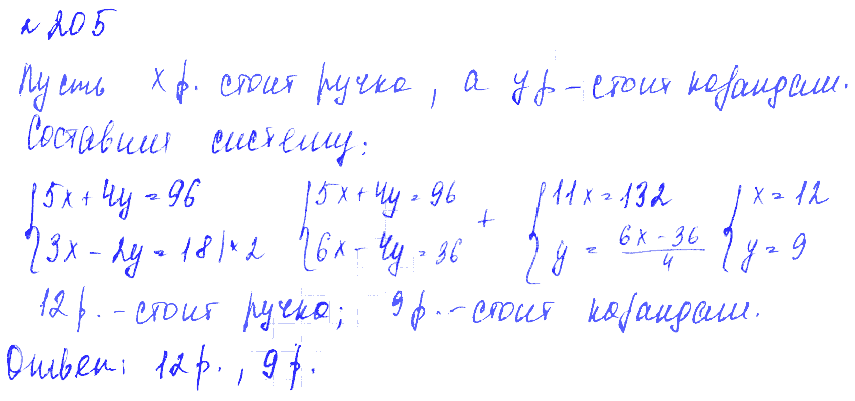 № 205
Пусть x р. стоит ручка, а y р – стоит карандаш.
Составим систему:
{5x + 4y = 96 {5x + 4y = 96 + {11x = 132 {x = 12
{3x – 2y = 18 | × 2 {6x – 4y = 36 {y = (6x – 36)/4 {y = 9
12 р. – стоит ручка; 9 р. – стоит карандаш.
Ответ: 12 р., 9 р.